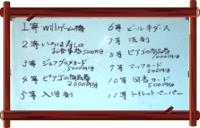 1等 Willゲーム機
2等 いのよねしの
お食事券 5000円分
3等 ジェフグルメカード
5000円分
4等 ピアゴの商品券
2000円分
5等 入浴剤
6等 ビールギフト
7等 洗剤
8等 ピアゴの商品券
2000円分
9等 マックカード
500円分
10等 図書カード
500円分
11等 トイレットペーパー